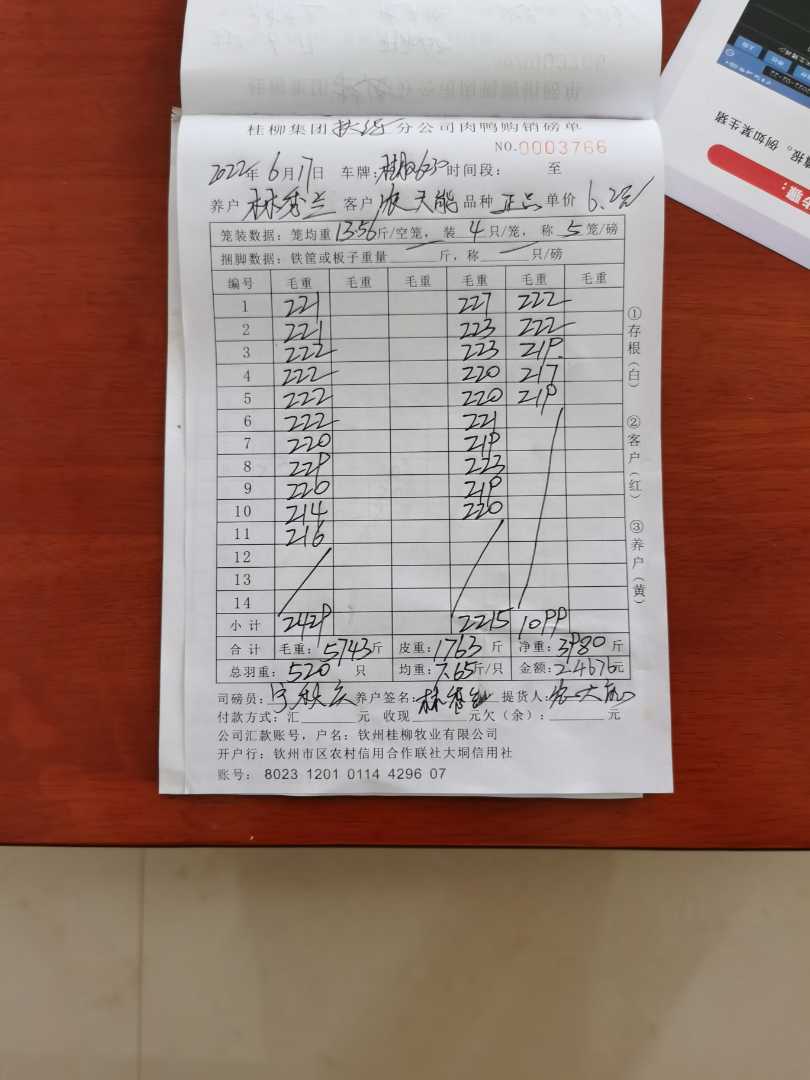 桂柳集团 分公司肉鸭购销磅单
NO.0003766
2022年 6月17日 车牌: 时间段: 至
养户 林秀兰 客户 天能 品种 正品 单价 6.2元
笼装数据: 笼均重13.56斤/空笼, 装 4 只/笼, 称 5 笼/磅
捆脚数据: 铁筐或板子重量 斤, 称 只/磅
编号 毛重 毛重 毛重 毛重 毛重 毛重
1 221 227 222
2 221 223 222
3 222 223 219
4 222 220 217
5 222 220 219
6 222 221
7 220 219
8 229 223
9 220 219
10 214 220
11 216
12
13
14
小计 2429 2215 1099
合计 毛重: 5743斤 皮重: 1763 斤 净重: 3980 斤
总羽重: 520 只 均重: 7.65斤/只 金额: 24676元
司磅员: 养户签名: 林秀兰 提货人:
付款方式: 汇 元 收现 元欠(余): 元
公司汇款账号, 户名: 钦州桂柳牧业有限公司
开户行: 钦州市区农村信用合作联社大垌信用社
账号: 8023 1201 0114 4296 07
①存根(白) ②客户(红) ③养户(黄)
填报。例如某生猪
步骤: